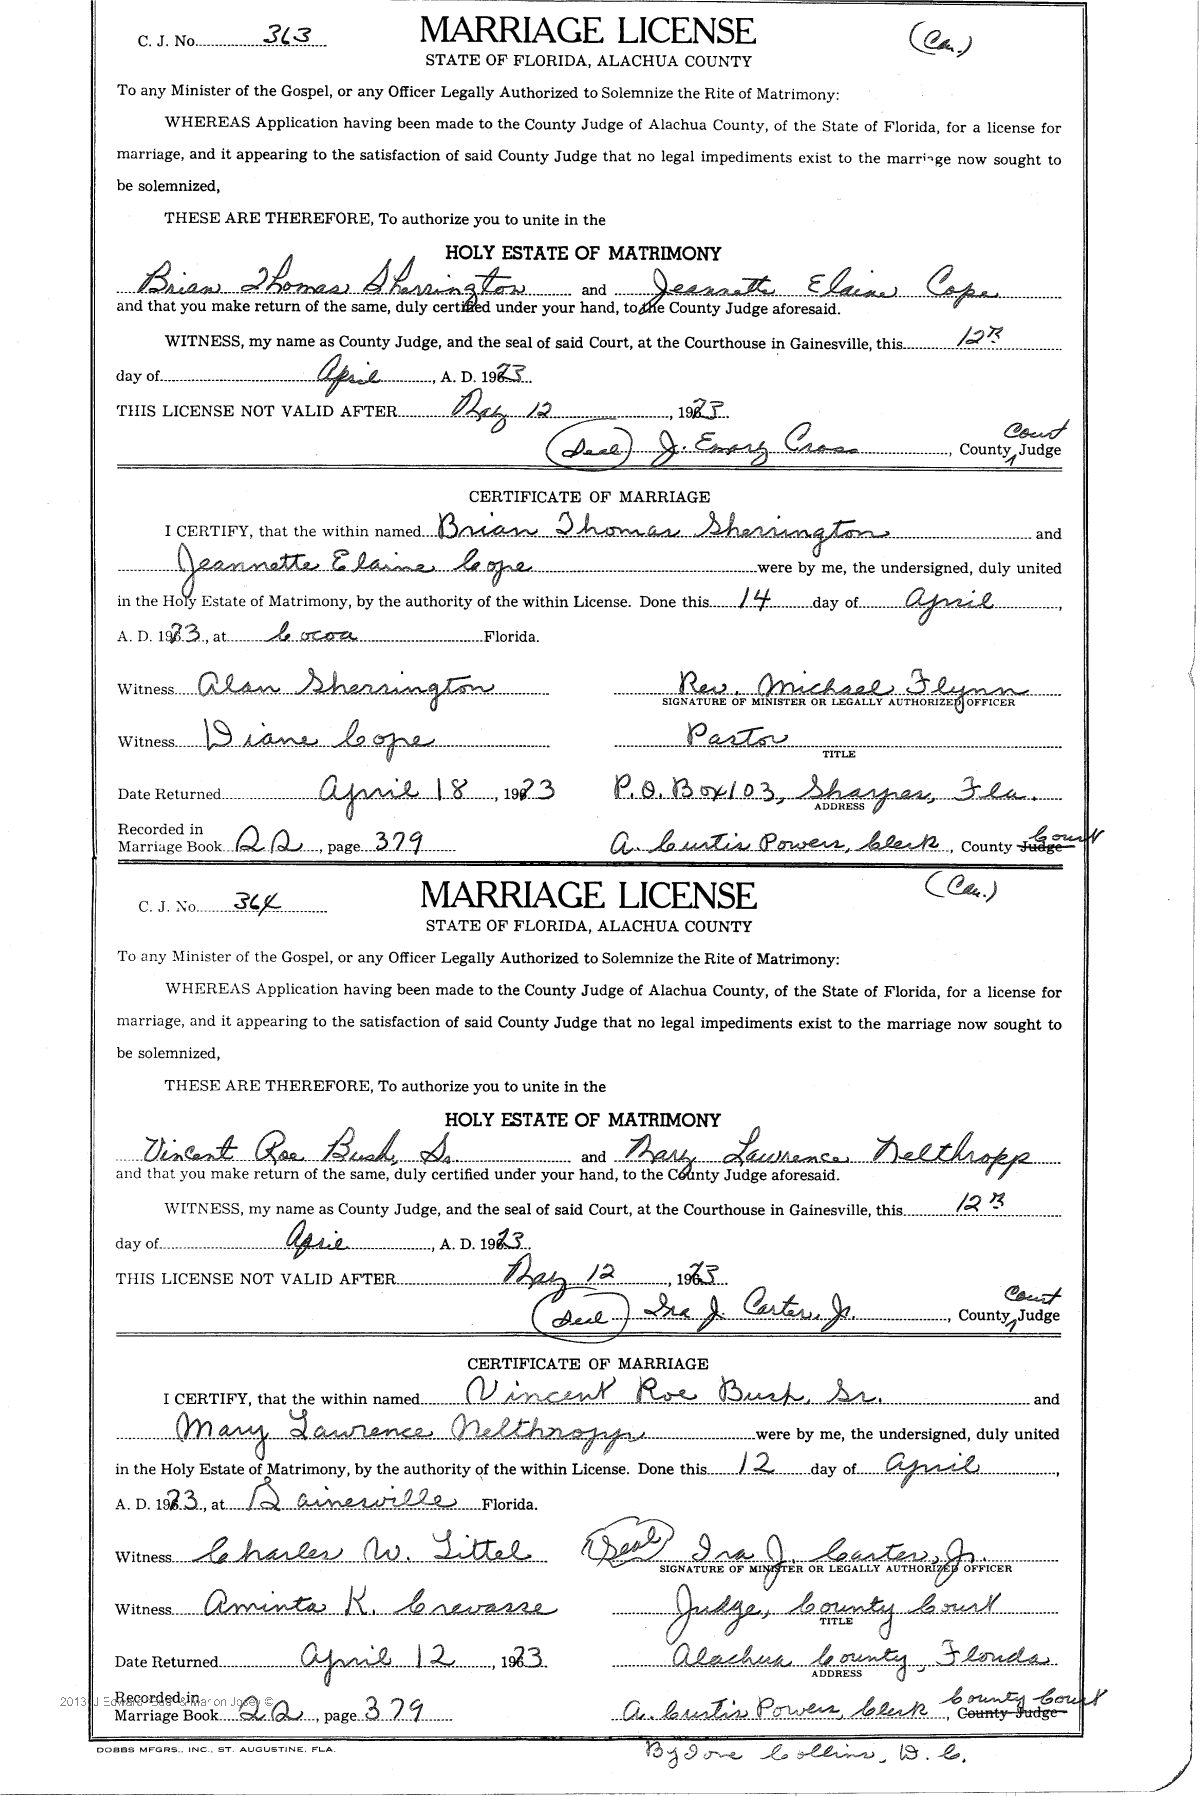 C. J. No. 363 MARRIAGE LICENSE (Can.)
STATE OF FLORIDA, ALACHUA COUNTY
To any Minister of the Gospel, or any Officer Legally Authorized to Solemnize the Rite of Matrimony:
WHEREAS Application having been made to the County Judge of Alachua County, of the State of Florida, for a license for
marriage, and it appearing to the satisfaction of said County Judge that no legal impediments exist to the marriage now sought to
be solemnized,
THESE ARE THEREFORE, To authorize you to unite in the
HOLY ESTATE OF MATRIMONY
Brian Thomas Sherrington and Jeannette Elaine Cope
and that you make return of the same, duly certified under your hand, to the County Judge aforesaid.
WITNESS, my name as County Judge, and the seal of said Court, at the Courthouse in Gainesville, this 12th
day of April, A. D. 1973
THIS LICENSE NOT VALID AFTER May 12, 1973
(Seal) J. Emory Cross, County Court Judge
CERTIFICATE OF MARRIAGE
I CERTIFY, that the within named Brian Thomas Sherrington and
Jeannette Elaine Cope were by me, the undersigned, duly united
in the Holy Estate of Matrimony, by the authority of the within License. Done this 14 day of April,
A. D. 1973, at Cocoa Florida.
Witness Alan Sherrington Rev. Michael Flynn
SIGNATURE OF MINISTER OR LEGALLY AUTHORIZED OFFICER
Witness Diane Cope Pastor
TITLE
Date Returned April 18, 1973 P.O. Box 103, Sharpes, Fla.
ADDRESS
Recorded in
Marriage Book 22, page 379 A. Curtis Powers, Clerk, County Judge Court
C. J. No. 364 MARRIAGE LICENSE (Can.)
STATE OF FLORIDA, ALACHUA COUNTY
To any Minister of the Gospel, or any Officer Legally Authorized to Solemnize the Rite of Matrimony:
WHEREAS Application having been made to the County Judge of Alachua County, of the State of Florida, for a license for
marriage, and it appearing to the satisfaction of said County Judge that no legal impediments exist to the marriage now sought to
be solemnized,
THESE ARE THEREFORE, To authorize you to unite in the
HOLY ESTATE OF MATRIMONY
Vincent Roe Bush, Sr. and Mary Lawrence Nelthropp
and that you make return of the same, duly certified under your hand, to the County Judge aforesaid.
WITNESS, my name as County Judge, and the seal of said Court, at the Courthouse in Gainesville, this 12th
day of April, A. D. 1973
THIS LICENSE NOT VALID AFTER May 12, 1973
(Seal) Ira J. Carter, Jr., County Court Judge
CERTIFICATE OF MARRIAGE
I CERTIFY, that the within named Vincent Roe Bush, Sr. and
Mary Lawrence Nelthropp were by me, the undersigned, duly united
in the Holy Estate of Matrimony, by the authority of the within License. Done this 12 day of April,
A. D. 1973, at Gainesville Florida.
Witness Charles W. Littel (Seal) Ira J. Carter, Jr.
SIGNATURE OF MINISTER OR LEGALLY AUTHORIZED OFFICER
Witness Aminta K. Crevasse Judge, County Court
TITLE
Date Returned April 12, 1973 Alachua County, Florida
ADDRESS
Recorded in
Marriage Book 22, page 379 A. Curtis Powers, Clerk, County Judge County Court
DOBBS MFGRS., INC., ST. AUGUSTINE, FLA.
By Ione Collins, D. C.
2013